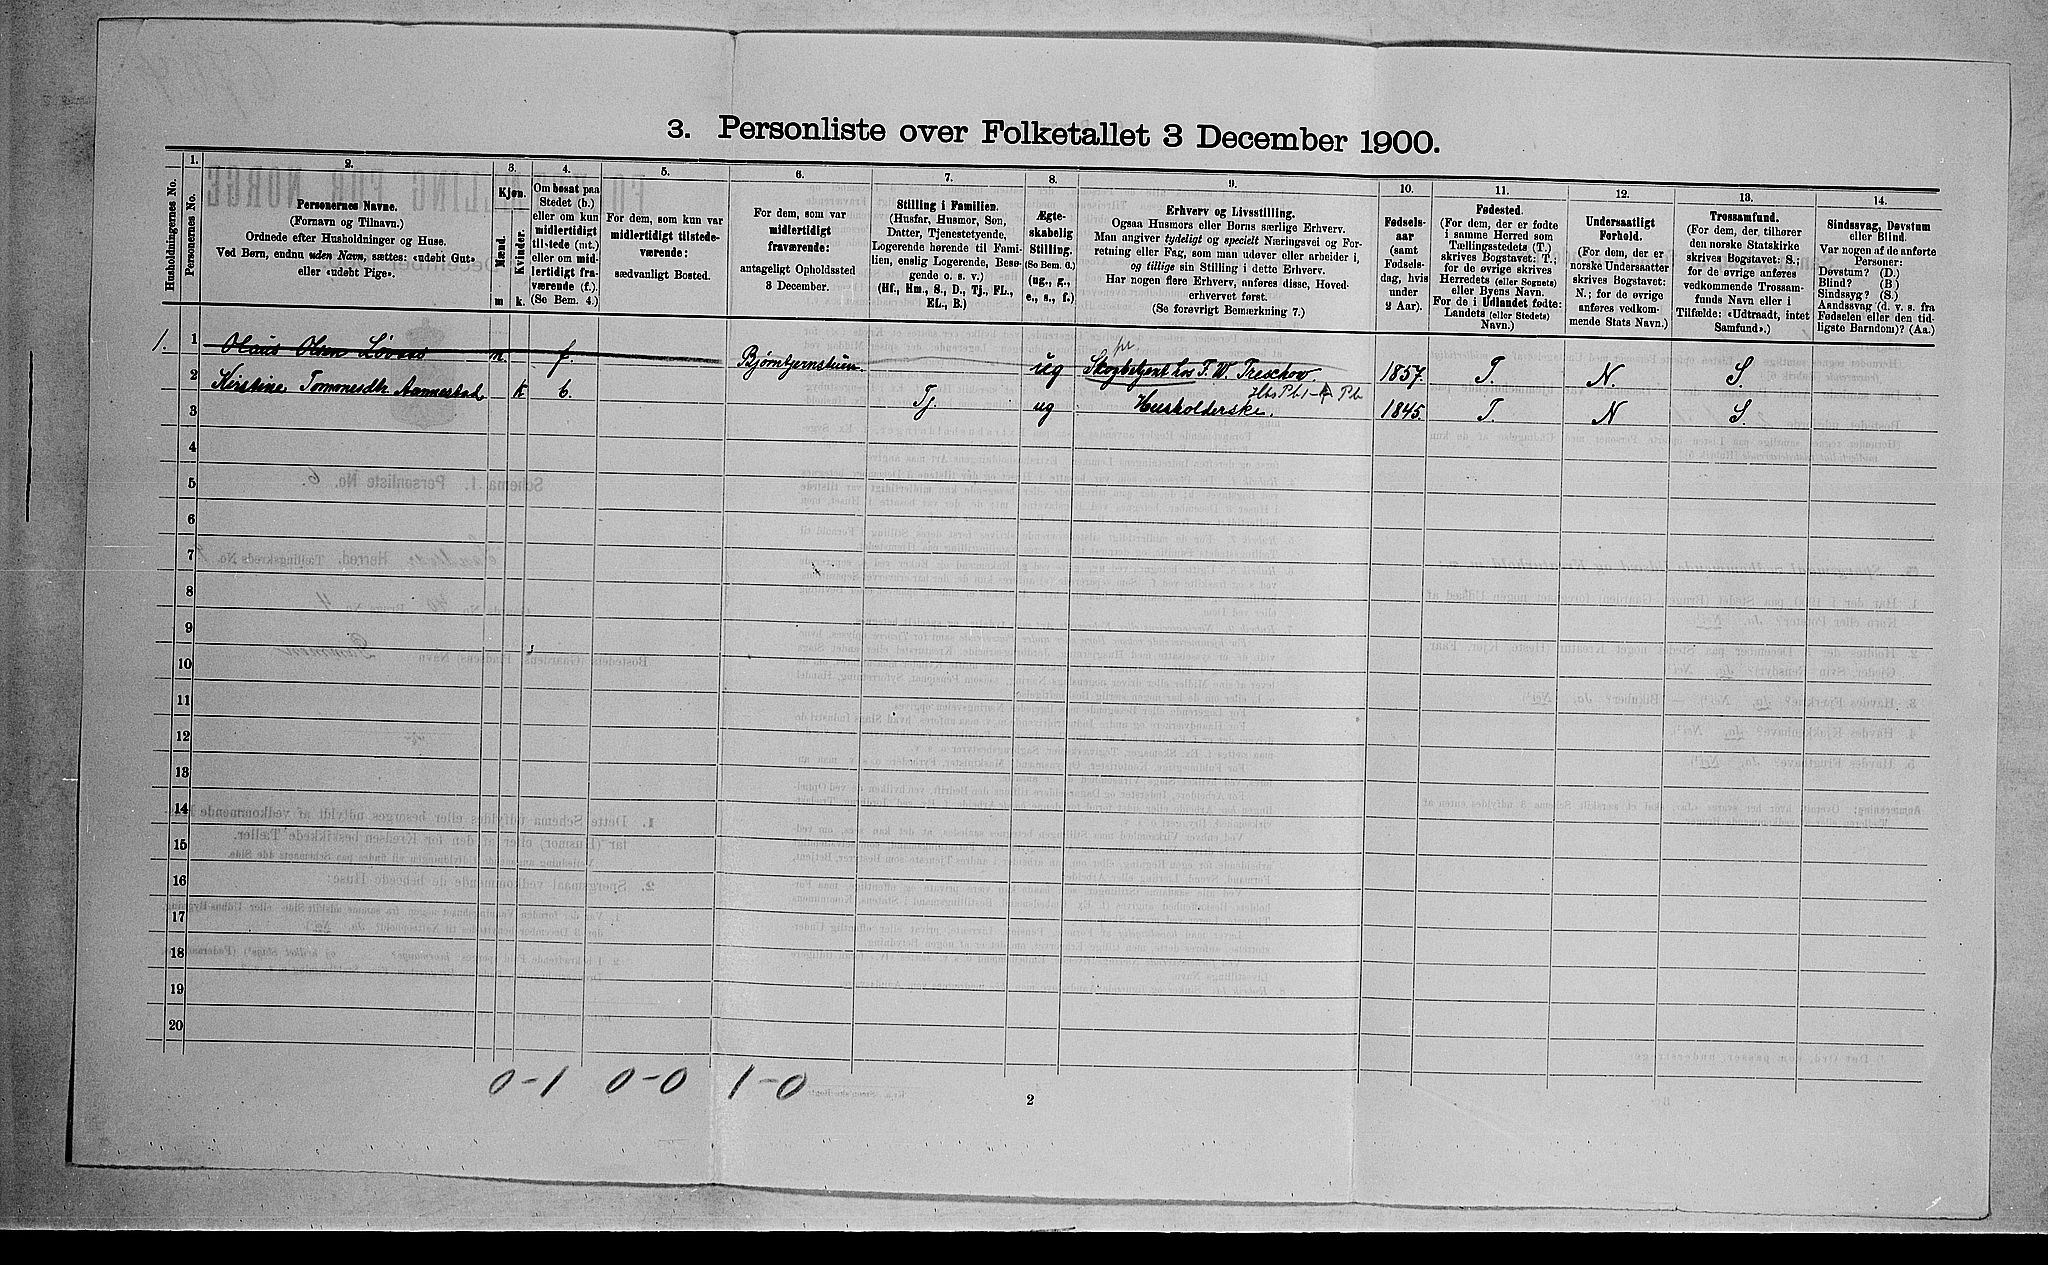 3. Personliste over Folketallet 3 December 1900.
Husholdningernes No.
1.
Personernes No.
2.
Personernes Navne.
(Fornavn og Tilnavn.)
Ordnede efter Husholdninger og Huse.
Ved Børn, endnu uden Navn, sættes: «udøbt Gut»
eller «udøbt Pige».
3.
Kjøn.
Mænd.
Kvinder.
m
k.
4.
Om bosat paa
Stedet (b.)
eller om kun
midlertidigt
tilstede (mt.)
eller om mid-
lertidigt fra-
værende (f.).
(Se Bem. 4.)
5.
For dem, som kun var
midlertidigt tilstede-
værende:
sædvanligt Bosted.
6.
For dem, som var
midlertidigt
fraværende:
antageligt Opholdssted
3 December.
7.
Stilling i Familien.
(Husfar, Husmor, Søn,
Datter, Tjenestetyende,
Logerende hørende til Fami-
lien, enslig Logerende, Besø-
gende o. s. v.)
(Hf., Hm., S., D., Tj., FL.,
EL., B.)
8.
Ægte-
skabelig
Stilling.
(Se Bem. 6.)
(ug., g.,
e., s., f.)
9.
Erhverv og Livsstilling.
Ogsaa Husmors eller Børns særlige Erhverv.
Man angiver tydeligt og specielt Næringsvei og For-
retning eller Fag, som man udøver eller arbeider i,
og tillige sin Stilling i dette Erhverv.
Har nogen flere Erhverv, anføres disse, Hoved-
erhvervet først.
(Se forøvrigt Bemærkning 7.)
10.
Fødsels-
aar
(samt
Fødsels-
dag, hvis
under
2 Aar).
11.
Fødested.
(For dem, der er fødte
i samme Herred som
Tællingsstedets (T.)
skrives Bogstavet: T.;
for de øvrige skrives
Herredets (eller Sognets)
eller Byens Navn.
For de i Udlandet fødte:
Landets (eller Stedets)
Navn.)
12.
Undersaatligt
Forhold.
(For dem, der er
norske Undersaatter
skrives Bogstavet:
N.; for de øvrige
anføres vedkom-
mende Stats Navn.)
13.
Trossamfund.
(For dem, der tilhører
den norske Statskirke
skrives Bogstavet: S.;
for de øvrige anføres
vedkommende Trossam-
funds Navn eller i
Tilfælde: «Udtraadt, intet
Samfund».)
14.
Sindssvag, Døvstum
eller Blind.
Var nogen af de anførte
Personer:
Døvstum? (D.)
Blind? (B.)
Sindssyg? (S.)
Aandssvag (d. v. s. fra
Fødselen eller den tid-
ligste Barndom)? (Aa.)
1. 1 Olaus Olsen Løvaas m. f. Bjørntjernstuen ug Skogbetjent hos F. W. Treschow. 1857. T. N. S.
2 Kirstine Tomonesdtr. Aannestad k b. Tj. ug Husholderske. 1845. T. N S.
3
4
5
6
7
8
9
10
11
12
13
14
15
16
17
18
19
20
0-1 0-0 1-0
2